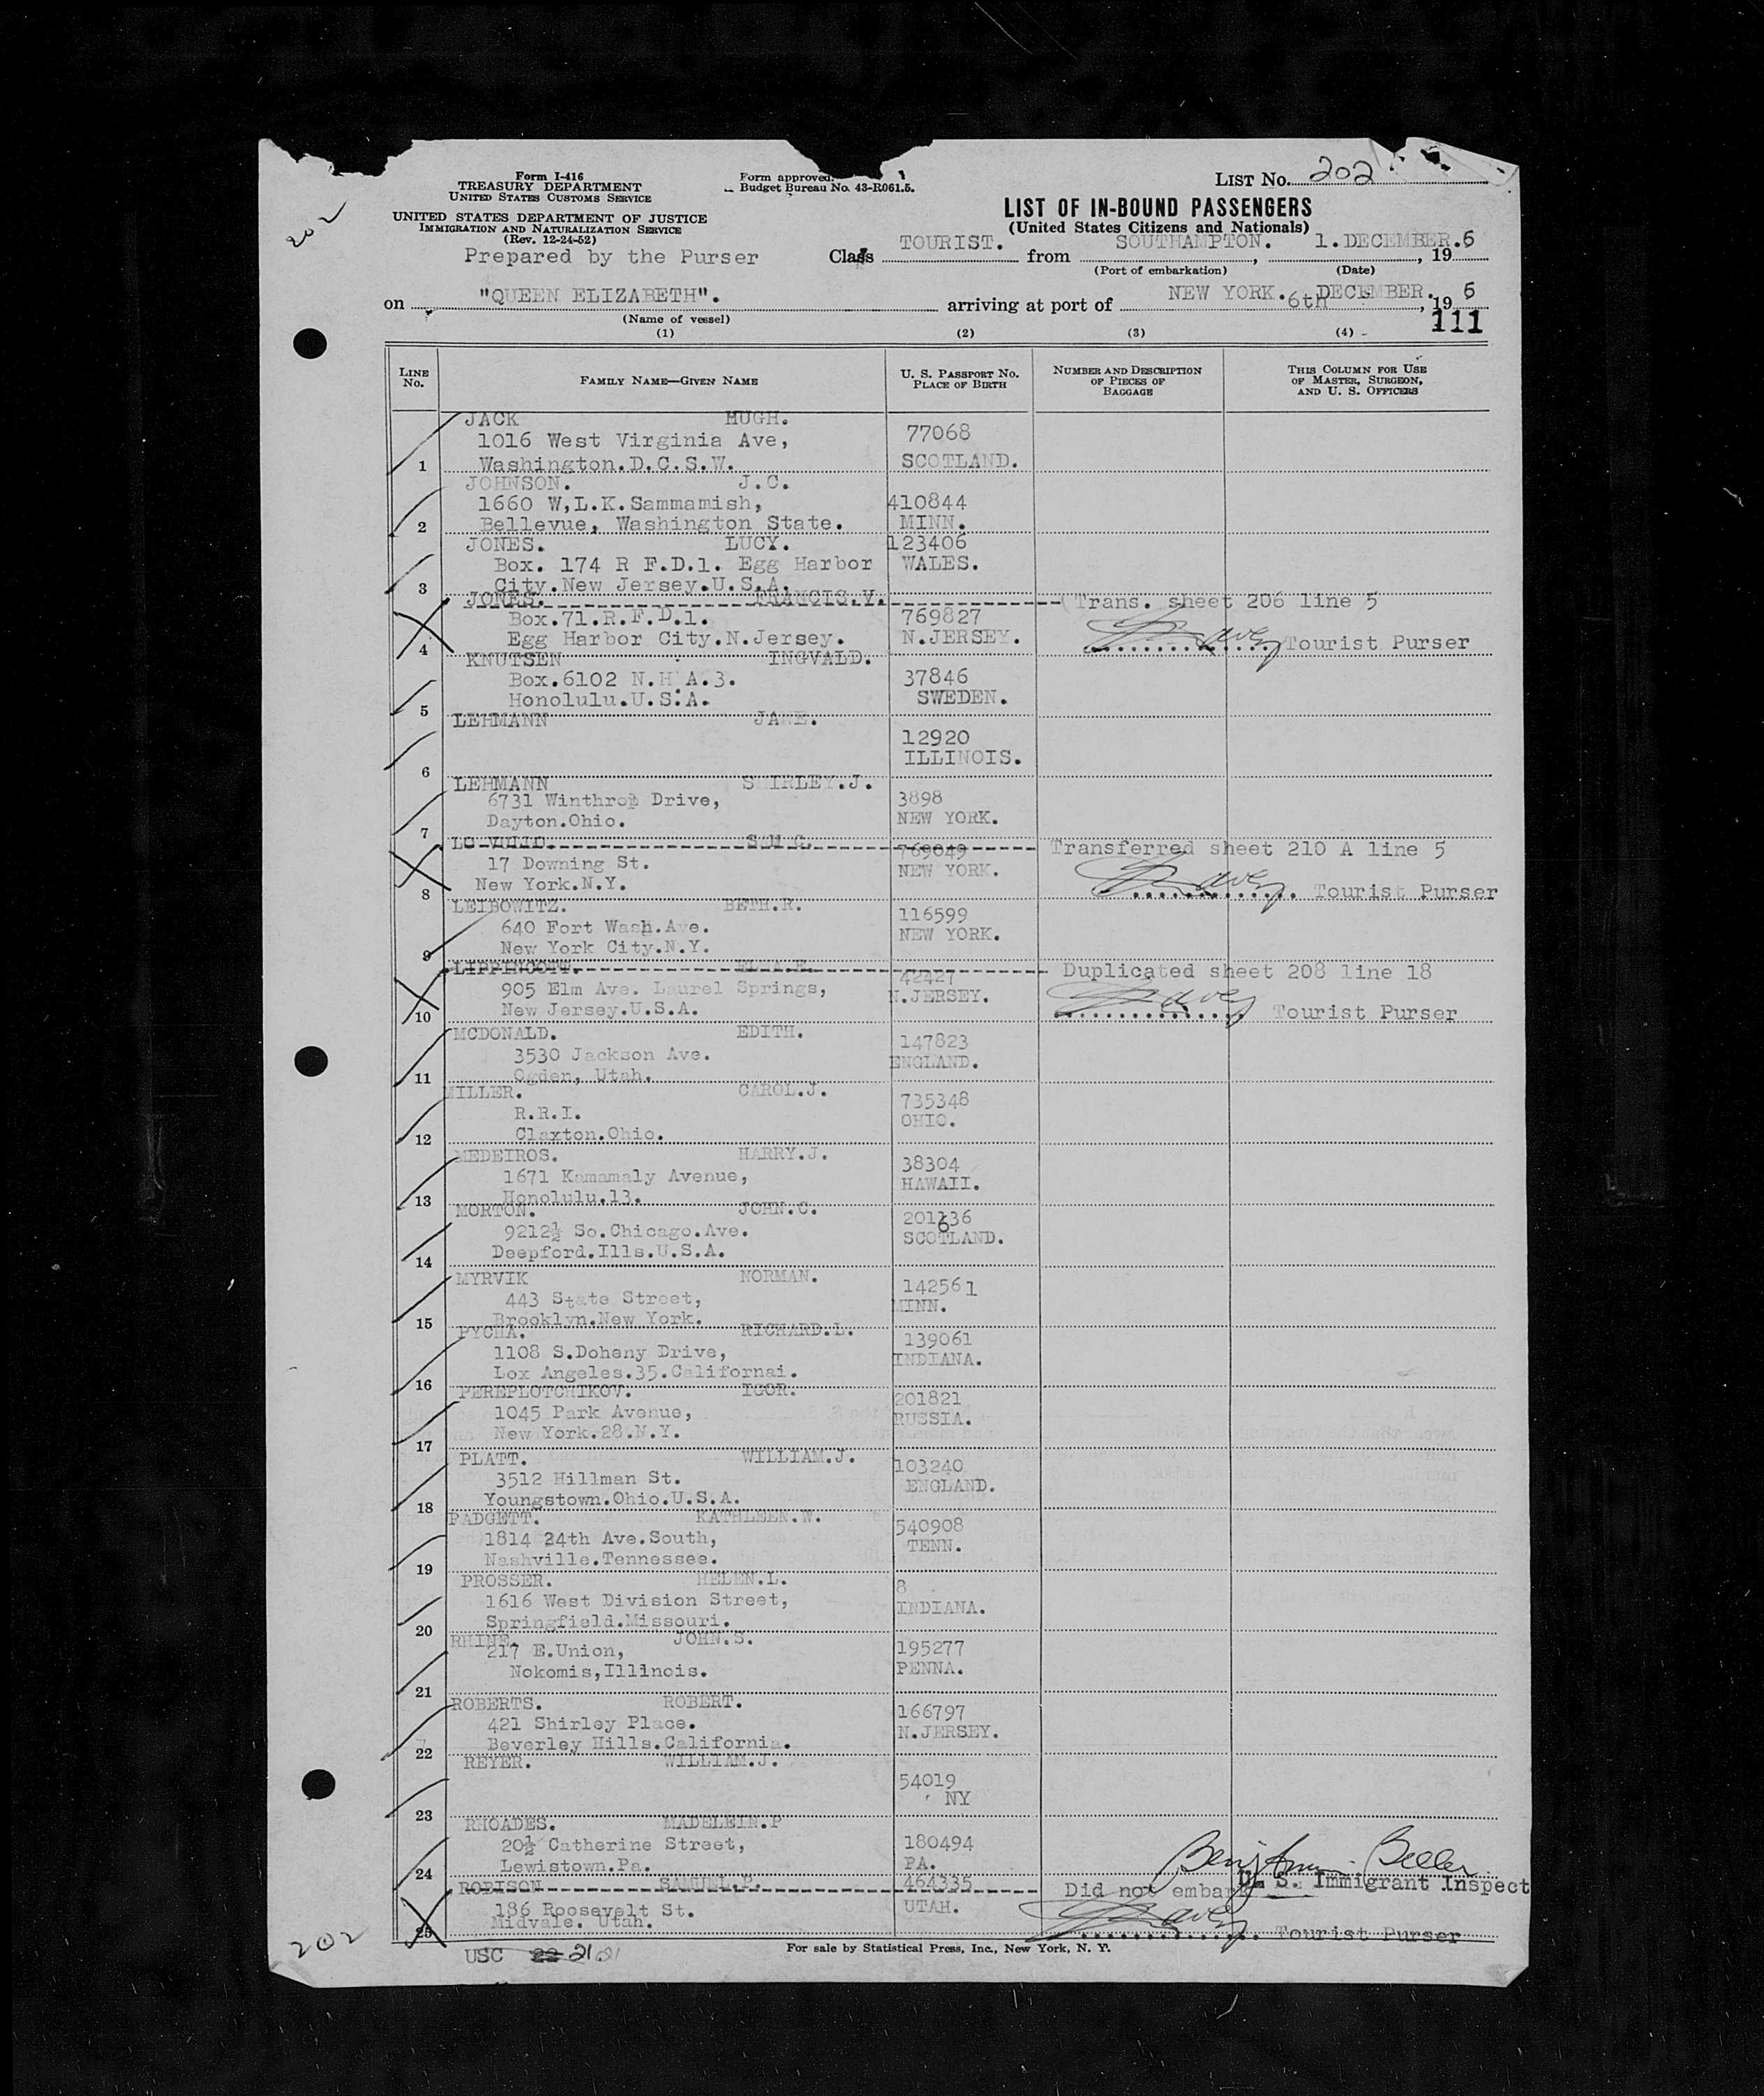 202
Form I-416
TREASURY DEPARTMENT
UNITED STATES CUSTOMS SERVICE
UNITED STATES DEPARTMENT OF JUSTICE
IMMIGRATION AND NATURALIZATION SERVICE
(Rev. 12-24-52)
Prepared by the Purser
Form approved.
Budget Bureau No. 43-R061.5.
LIST NO. 202
LIST OF IN-BOUND PASSENGERS
(United States Citizens and Nationals)
Class TOURIST. from SOUTHAMPTON. , 1.DECEMBER. , 19 56
(Port of embarkation) (Date)
on "QUEEN ELIZABETH". arriving at port of NEW YORK. 6th DECEMBER. , 19 56
(Name of vessel)
111
(1) (2) (3) (4)
LINE NO. FAMILY NAME—GIVEN NAME U. S. PASSPORT NO. PLACE OF BIRTH NUMBER AND DESCRIPTION OF PIECES OF BAGGAGE THIS COLUMN FOR USE OF MASTER, SURGEON, AND U. S. OFFICERS
JACK HUGH.
1016 West Virginia Ave, 77068
1 Washington.D.C.S.W. SCOTLAND.
JOHNSON. J.C.
1660 W,L.K.Sammamish, 410844
2 Bellevue, Washington State. MINN.
JONES. LUCY. 123406
Box. 174 R F.D.1. Egg Harbor WALES.
3 City.New Jersey.U.S.A.
JONES. FRANCIS.V. Trans. sheet 206 line 5
Box.71.R.F.D.1. 769827
4 Egg Harbor City.N.Jersey. N.JERSEY. Tourist Purser
KNUTSEN INGVALD.
Box.6102 N.H.A.3. 37846
5 Honolulu.U.S.A. SWEDEN.
LEHMANN JANE.
12920
6 ILLINOIS.
LEHMANN SHIRLEY.J.
6731 Winthrop Drive, 3898
7 Dayton.Ohio. NEW YORK.
LO VULLO. SAM C. 769049 Transferred sheet 210 A line 5
17 Downing St. NEW YORK.
8 New York.N.Y. Tourist Purser
LEIBOWITZ. BETH.R. 116599
640 Fort Wash.Ave. NEW YORK.
9 New York City.N.Y.
LIPPINCOTT. ELLA.E. 42427 Duplicated sheet 208 line 18
905 Elm Ave. Laurel Springs, N.JERSEY.
10 New Jersey.U.S.A. Tourist Purser
MCDONALD. EDITH. 147823
3530 Jackson Ave. ENGLAND.
11 Ogden, Utah.
MILLER. CAROL.J. 735348
R.R.I. OHIO.
12 Claxton.Ohio.
MEDEIROS. HARRY.J. 38304
1671 Kamamaly Avenue, HAWAII.
13 Honolulu.13.
MORTON. JOHN.C. 201636
9212½ So.Chicago.Ave. SCOTLAND.
14 Deepford.Ills.U.S.A.
MYRVIK NORMAN. 142561
443 State Street, MINN.
15 Brooklyn.New York.
PYCHA. RICHARD.L. 139061
1108 S.Doheny Drive, INDIANA.
16 Lox Angeles.35.Californai.
PEREPLOTCHIKOV. IGOR. 201821
1045 Park Avenue, RUSSIA.
17 New York.28.N.Y.
PLATT. WILLIAM.J. 103240
3512 Hillman St. ENGLAND.
18 Youngstown.Ohio.U.S.A.
PADGETT. KATHLEEN.W. 540908
1814 24th Ave.South, TENN.
19 Nashville.Tennessee.
PROSSER. HELEN.L. 8
1616 West Division Street, INDIANA.
20 Springfield.Missouri.
RHINE. JOHN.S.
217 E.Union, 195277
21 Nokomis,Illinois. PENNA.
ROBERTS. ROBERT. 166797
421 Shirley Place. N.JERSEY.
22 Beverley Hills.California.
REYER. WILLIAM.J.
54019
23 NY
RHOADES. MADELEIN.P
20½ Catherine Street, 180494
24 Lewistown.Pa. PA. Benjamin Beller
ROBISON SAMUEL.P. 464335 Did not embark U. S. Immigrant Inspect
186 Roosevelt St. UTAH.
25 Midvale. Utah. Tourist Purser
202
USC 22 21 21
For sale by Statistical Press, Inc., New York, N. Y.